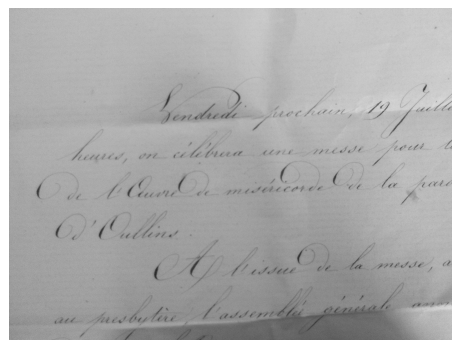 Vendredi prochain, 19 Juille
heures, on célébrera une messe pour l
de l'Œuvre de miséricorde de la paro
d'Oullins.
A l'issue de la messe, a
au presbytère, l'assemblée générale ann